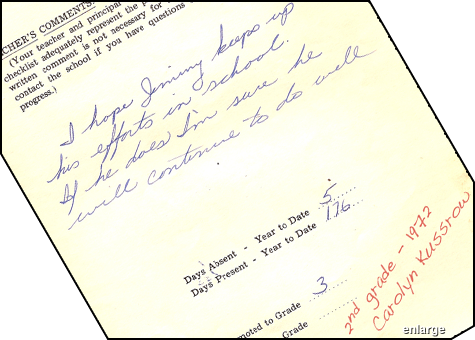 CHER'S COMMENTS:
(Your teacher and principal
checklist adequately represent the p
written comment is not necessary for
contact the school if you have questions
progress.)
I hope Jimmy keeps up
his efforts in school.
If he does I'm sure he
will continue to do well
Days Absent - Year to Date 5
Days Present - Year to Date 176
moted to Grade 3
Grade
2nd grade - 1972
Carolyn Kussrow
enlarge